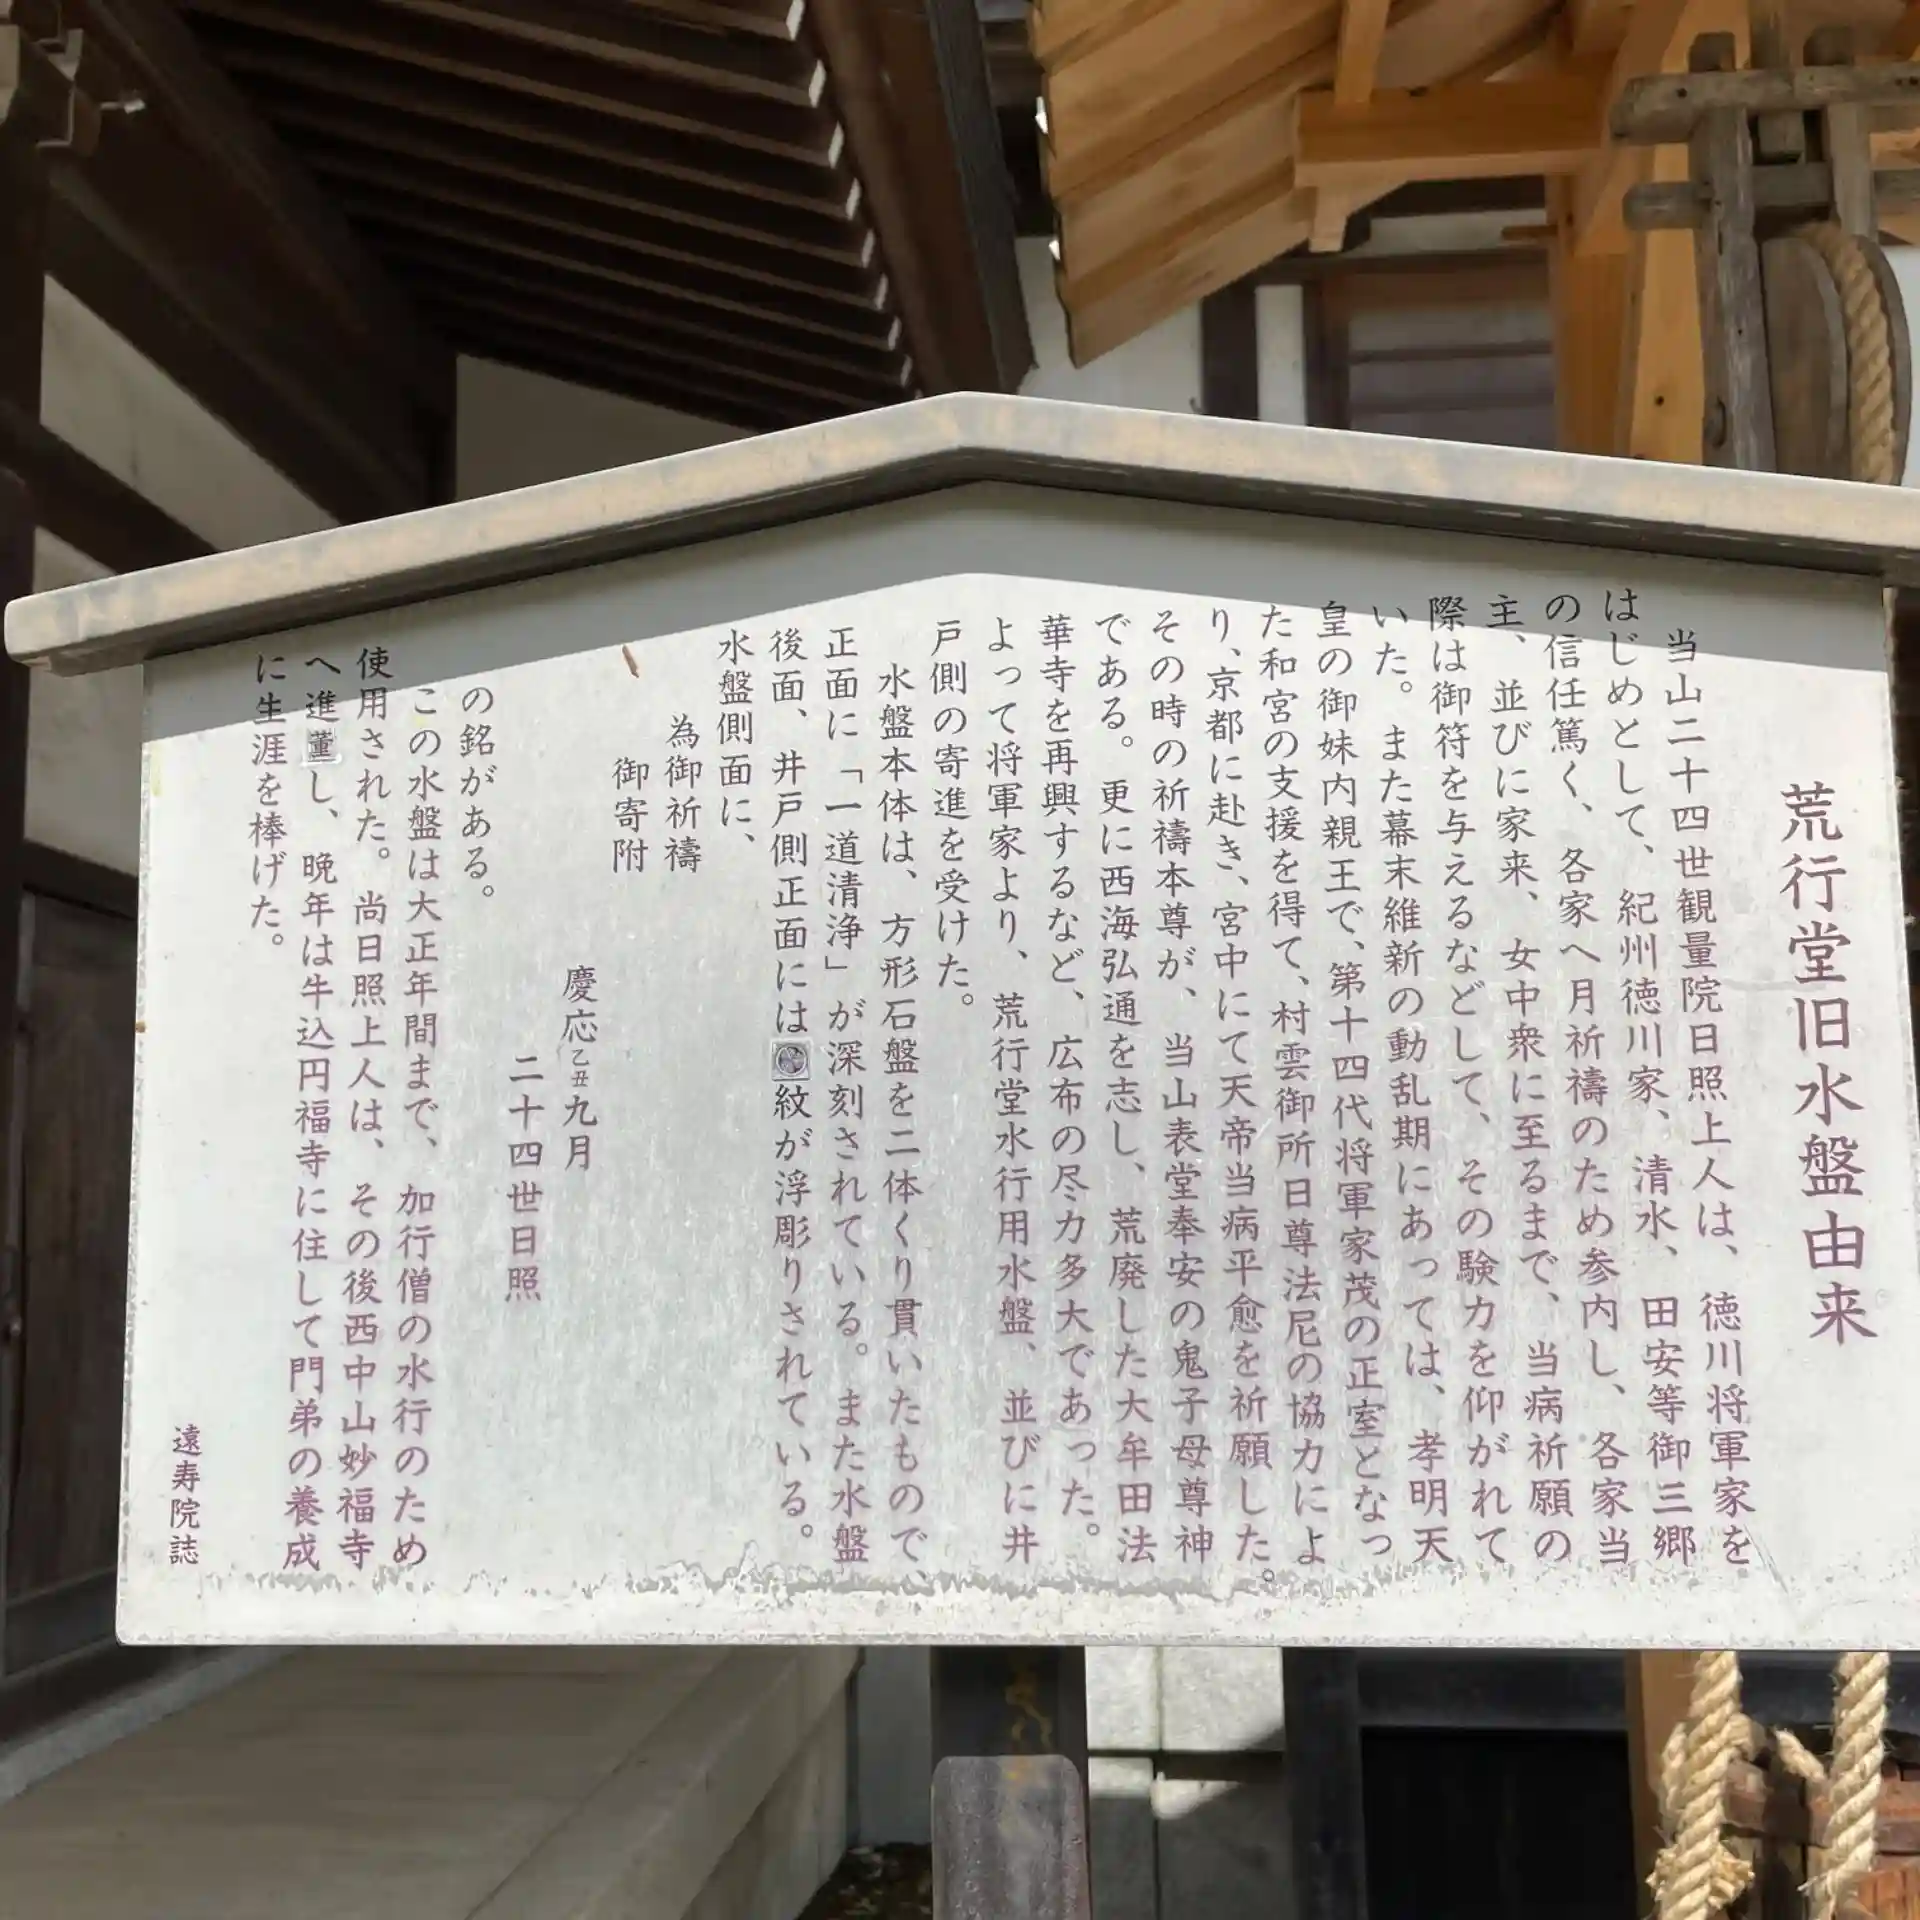 荒行堂旧水盤由来
当山二十四世観量院日照上人は、徳川将軍家を
はじめとして、紀州徳川家、清水、田安等御三郷
の信任篤く、各家へ月祈禱のため参内し、各家当
主、並びに家来、女中衆に至るまで、当病祈願の
際は御符を与えるなどして、その験力を仰がれて
いた。また幕末維新の動乱期にあっては、孝明天
皇の御妹内親王で、第十四代将軍家茂の正室となっ
た和宮の支援を得て、村雲御所日尊法尼の協力によ
り、京都に赴き、宮中にて天帝当病平愈を祈願した。
その時の祈禱本尊が、当山表堂奉安の鬼子母尊神
である。更に西海弘通を志し、荒廃した大牟田法
華寺を再興するなど、広布の尽力多大であった。
よって将軍家より、荒行堂水行用水盤、並びに井
戸側の寄進を受けた。
水盤本体は、方形石盤を二体くり貫いたもので、
正面に「一道清浄」が深刻されている。また水盤
後面、井戸側正面には紋が浮彫りされている。
水盤側面に、
為御祈禱
御寄附
慶応乙丑九月
二十四世日照
の銘がある。
この水盤は大正年間まで、加行僧の水行のため
使用された。尚日照上人は、その後西中山妙福寺
へ進董し、晩年は牛込円福寺に住して門弟の養成
に生涯を棒げた。
遠寿院誌